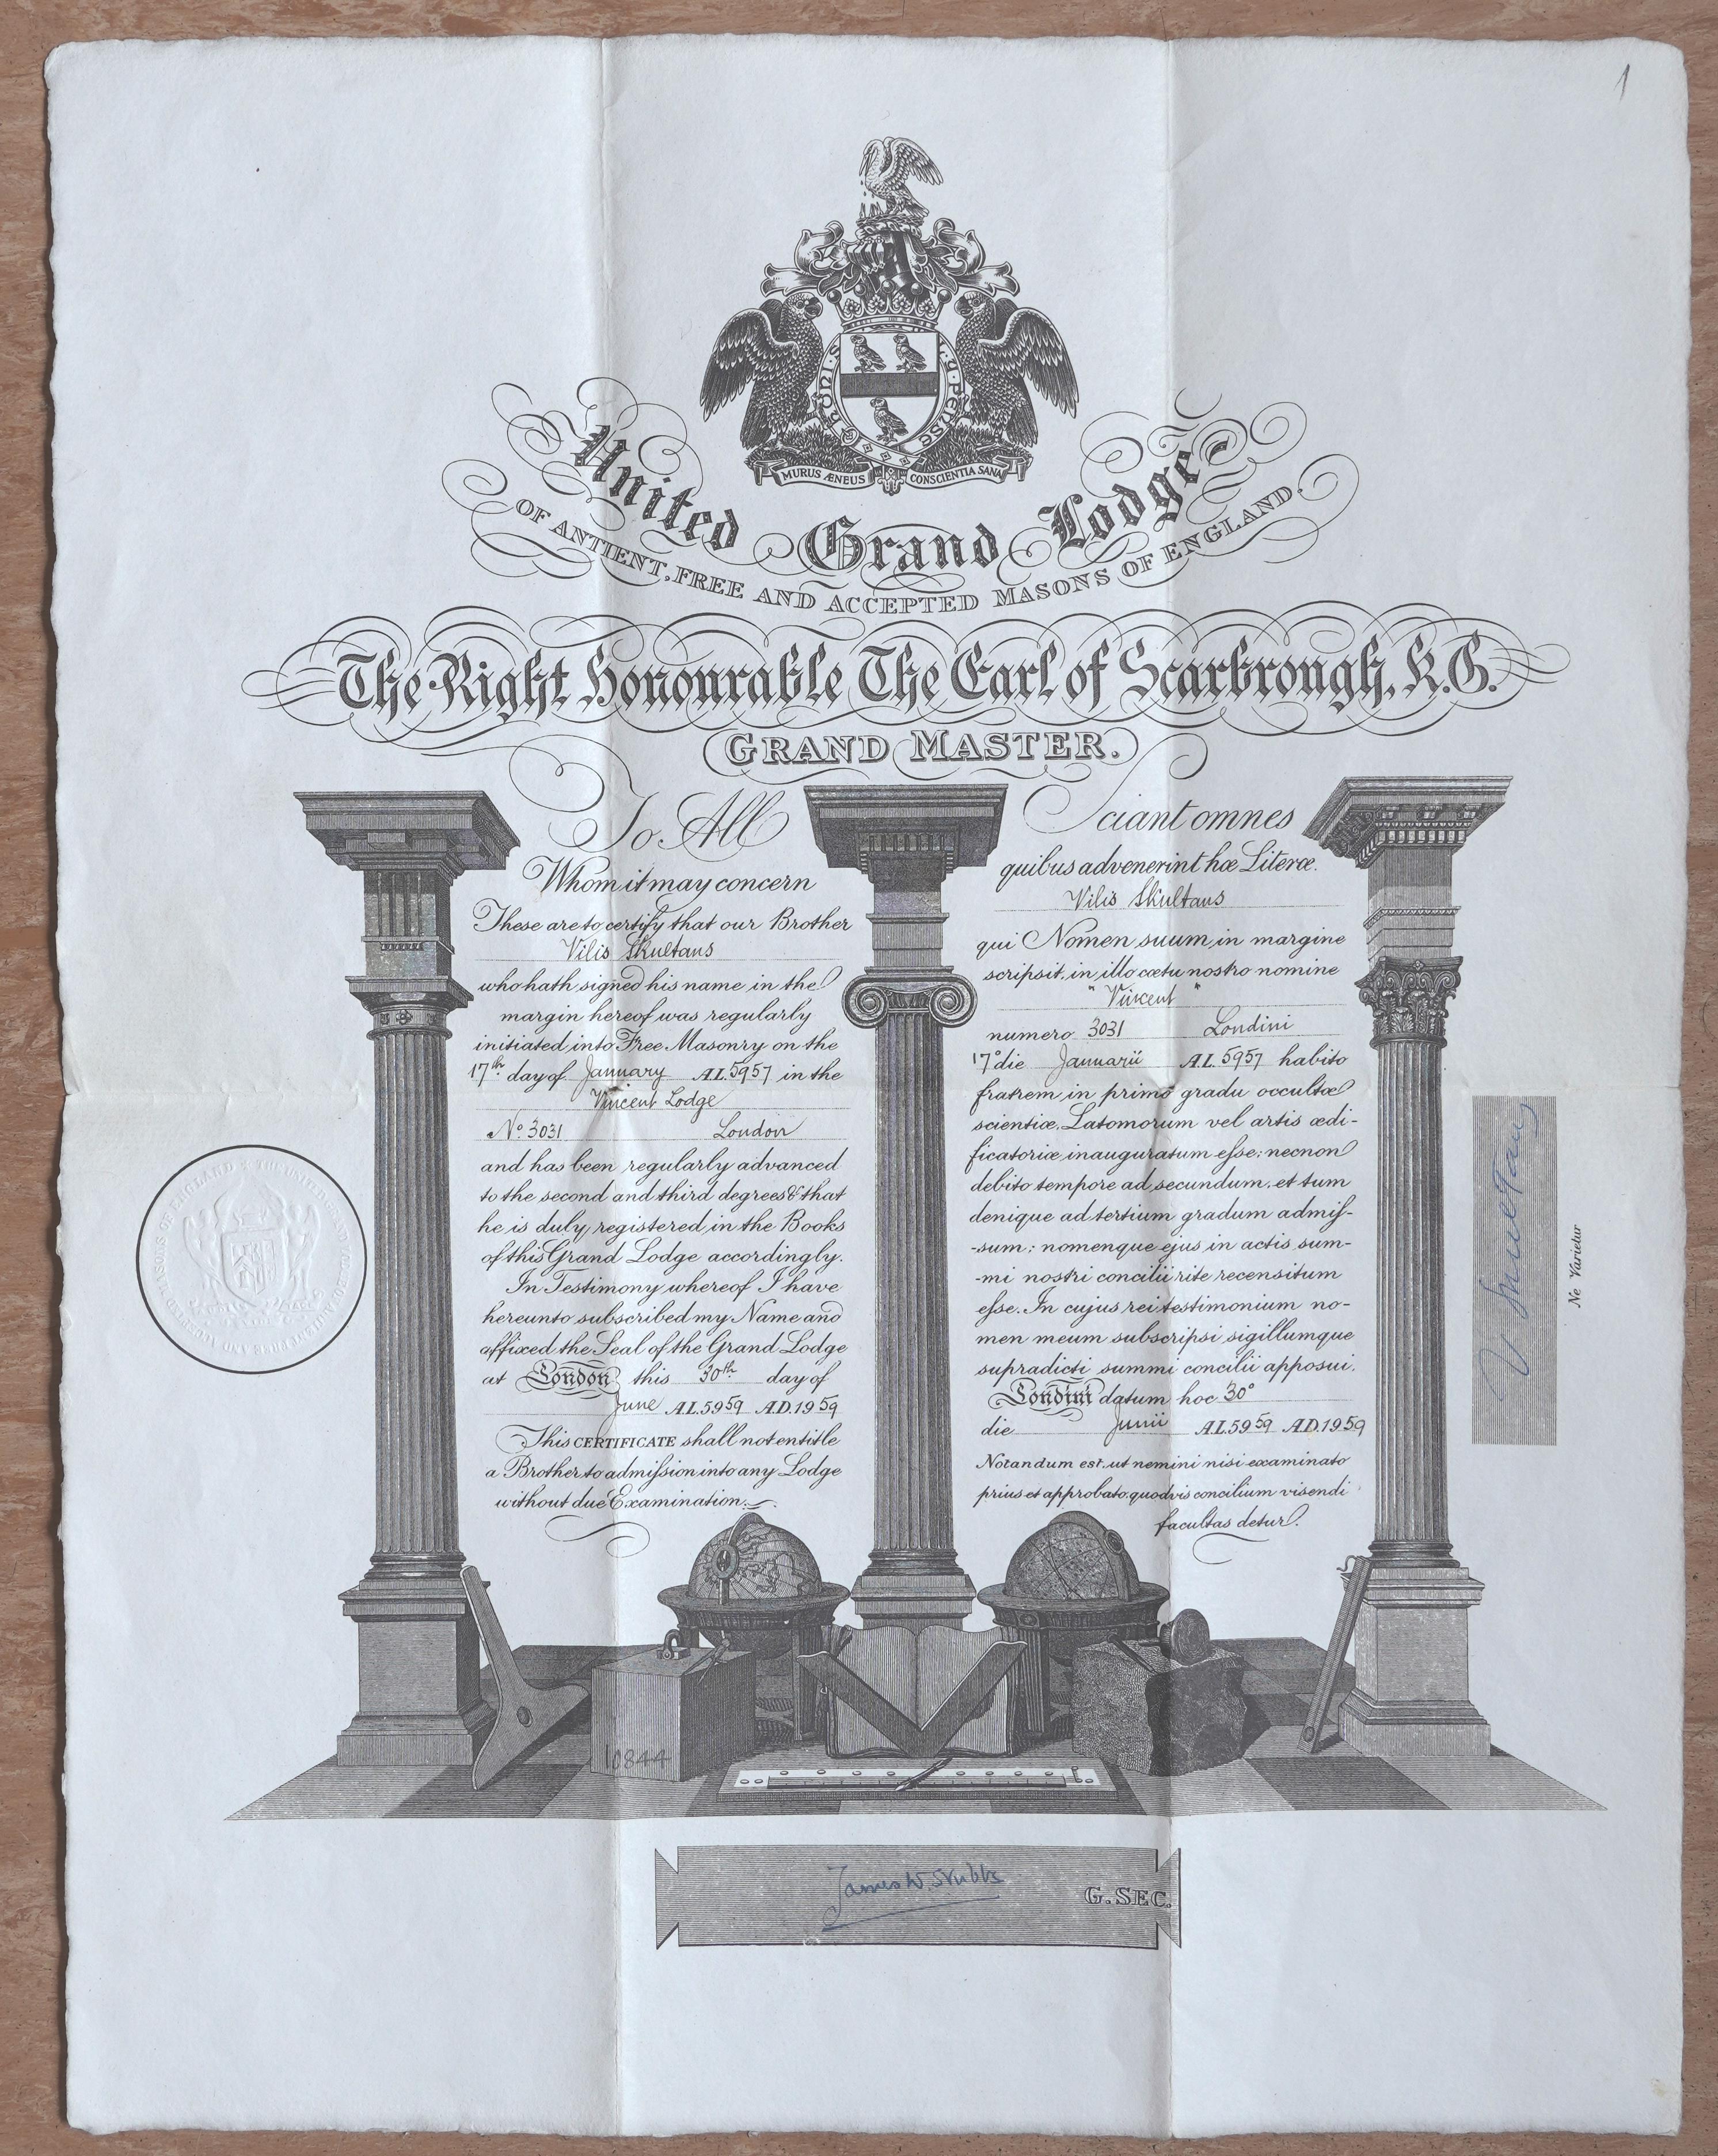 1
HONI S
Y PENSE
MURUS ÆNEUS CONSCIENTIA SANA
United Grand Lodge
OF ANTIENT, FREE AND ACCEPTED MASONS OF ENGLAND.
The Right Honourable The Earl of Scarbrough, K.G.
GRAND MASTER.
To All
Whom it may concern
These are to certify that our Brother
Vilis Skultans
who hath signed his name in the
margin hereof was regularly
initiated into Free Masonry on the
17th day of January A.L. 5957 in the
Vincent Lodge
No. 3031 London
and has been regularly advanced
to the second and third degrees & that
he is duly registered in the Books
of this Grand Lodge accordingly.
In Testimony whereof I have
hereunto subscribed my Name and
affixed the Seal of the Grand Lodge
at London this 30th day of
June A.L. 5959 A.D. 1959
This CERTIFICATE shall not entitle
a Brother to admiſsion into any Lodge
without due Examination.
Sciant omnes
quibus advenerint hæ Literæ.
Vilis Skultans
qui Nomen suum in margine
scripsit, in illo cœtu nostro nomine
"Vincent"
numero 3031 Londini
17o die Januarii A.L. 5957 habito
fratrem in primo gradu occultæ
scientiæ, Latomorum vel artis ædi-
ficatoriæ inauguratum eſse: necnon
debito tempore ad secundum, et tum
denique ad tertium gradum admiſ-
-sum: nomenque ejus in actis sum-
-mi nostri concilii rite recensitum
eſse. In cujus rei testimonium no-
men meum subscripsi sigillumque
supradicti summi concilii apposui.
Londini datum hoc 30o
die Junii A.L. 5959 A.D. 1959
Notandum est, ut nemini nisi examinato
prius et approbato, quodvis concilium visendi
facultas detur.
V Skultans
Ne Varietur
10844
James W. Stubbs
G. SEC.